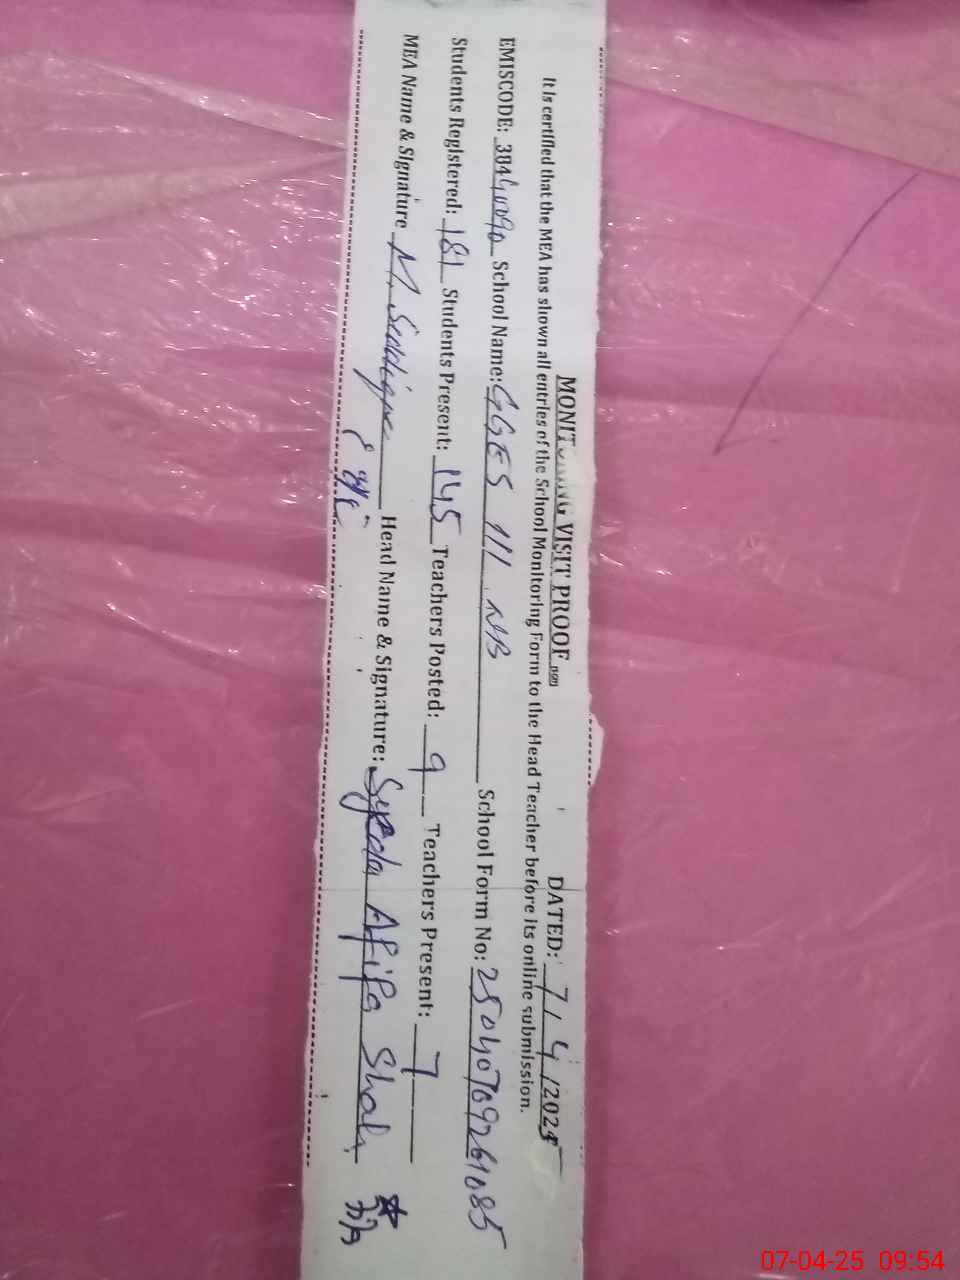 MONITORING VISIT PROOF DATED: 7/4/2025
It is certified that the MEA has shown all entries of the School Monitoring Form to the Head Teacher before its online submission.
EMISCODE: 38440090 School Name: GGES 111 NB School Form No: 25040709261085
Students Registered: 181 Students Present: 145 Teachers Posted: 9 Teachers Present: 7
MEA Name & Signature M. Siddique Head Name & Signature: Syeda Afifa Shah
07-04-25 09:54